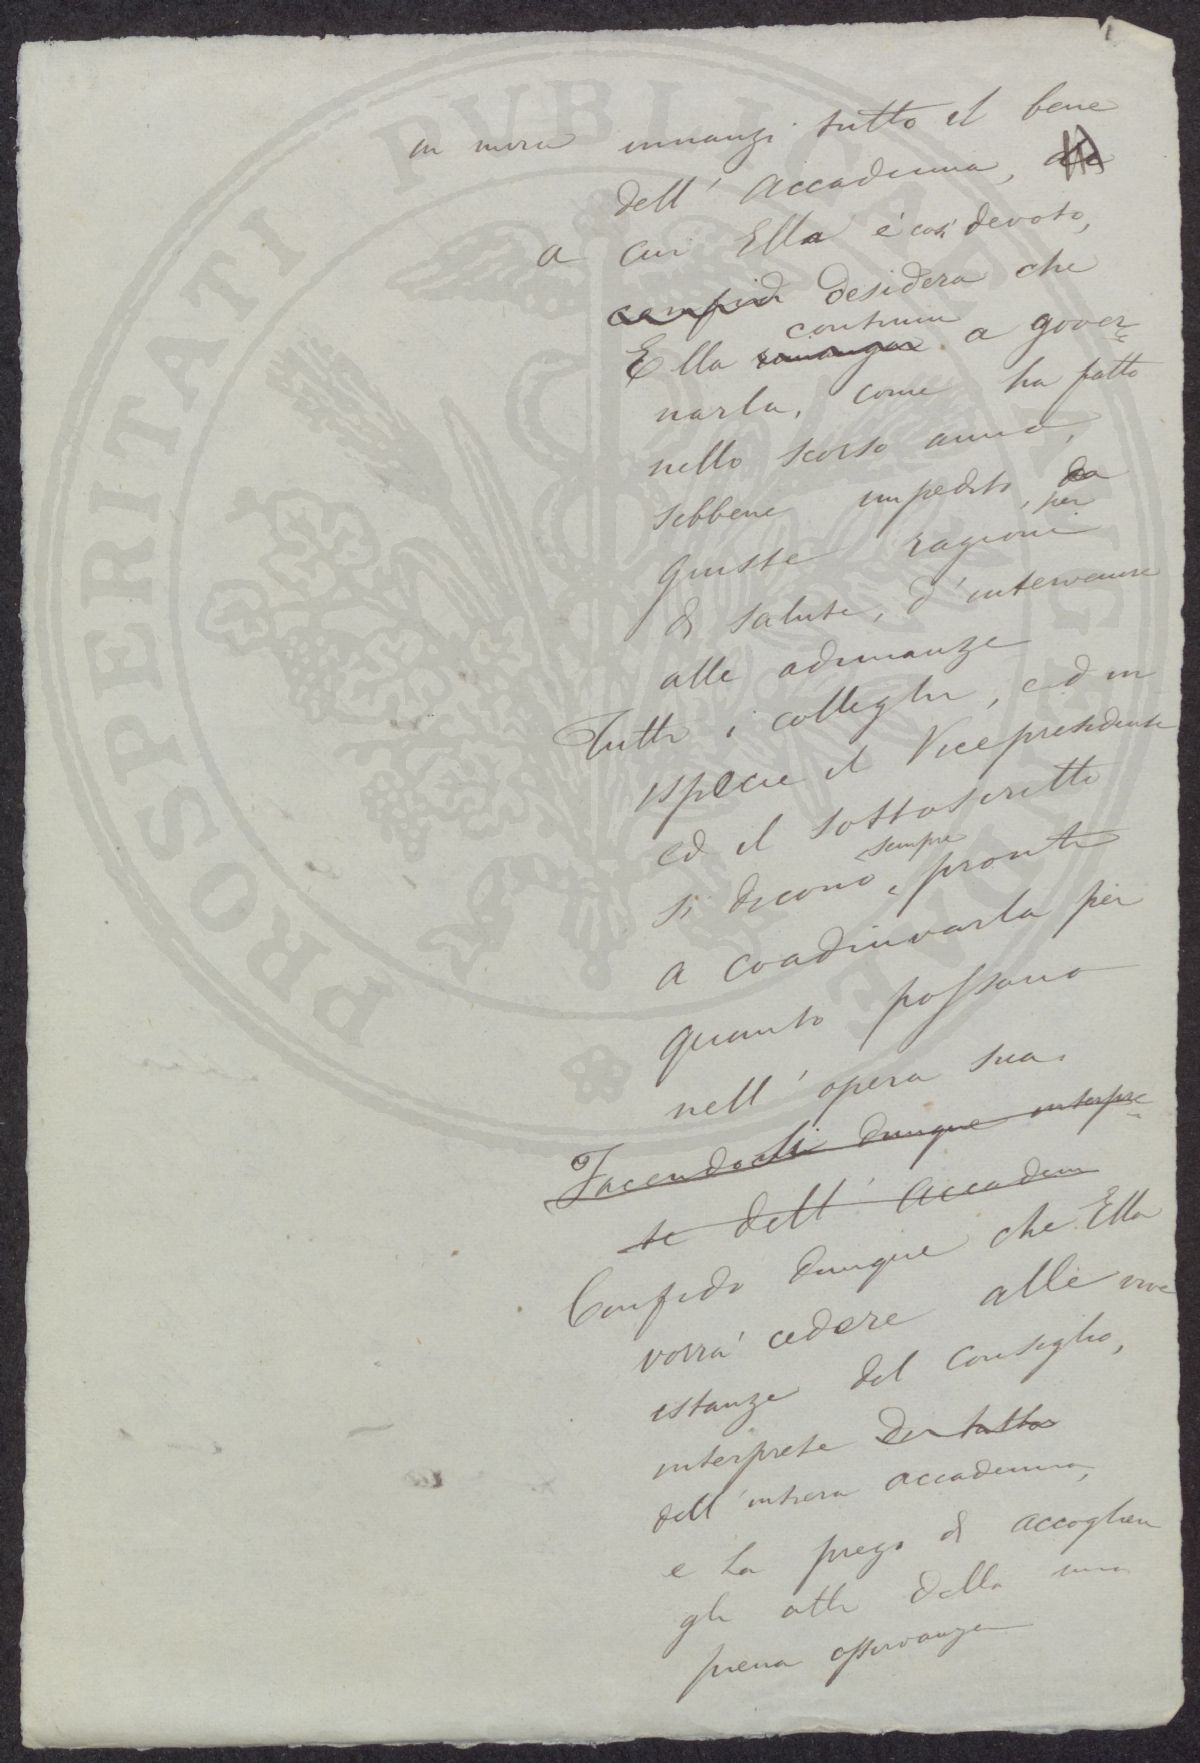 in mira innanzi tutto il bene
dell'Accademia,
a cui Ella è così devoto,
confid desidera che
continui
Ella rimanga a gover=
narla, come ha fatto
nello scorso anno,
sebbene impedito, da
per
giuste ragioni
di salute, d'intervenire
alle adunanze
Tutti i colleghi, ed in
ispecie il Vicepresidente
ed il sottoscritto
sempre
si dicono pronti
a coadiuvarla per
quanto possano
nell'opera sua.
Facendosi dunque interpre=
te dell'Accadem
Confido dunque che Ella
vorrà cedere alle vive
istanze del Consiglio,
interprete di tutta
dell'intera accademia,
e La prego di accogliere
gli atti della mia
piena osservanza
PROSPERITATI PVBLICAE AVGENDAE